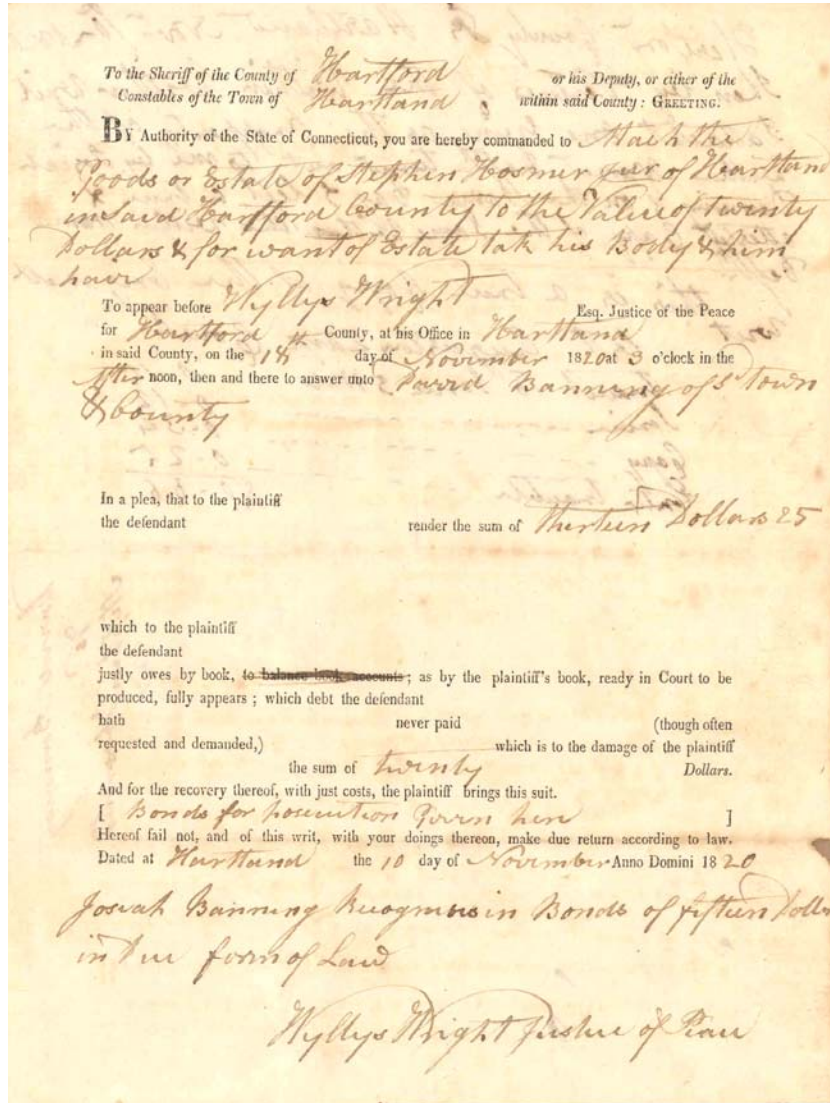 To the Sheriff of the County of Hartford or his Deputy, or either of the
Constables of the Town of Hartland within said County: GREETING.
BY Authority of the State of Connecticut, you are hereby commanded to Attach the
Goods or Estate of Stephen Hosmer jur of Heartland
in Said Hartford County to the Value of twenty
Dollars & for want of Estate tak his Body & him
have
To appear before Wyllys Wright Esq. Justice of the Peace
for Hartford County, at his Office in Hartland
in said County, on the 18th day of November 1820 at 3 o'clock in the
After noon, then and there to answer unto David Banning of sd town
& County
In a plea, that to the plaintiff
the defendant render the sum of thirteen Dollars 25
which to the plaintiff
the defendant
justly owes by book, to balance book accounts; as by the plaintiff's book, ready in Court to be
produced, fully appears; which debt the defendant
hath never paid (though often
requested and demanded,) which is to the damage of the plaintiff
the sum of twenty Dollars.
And for the recovery thereof, with just costs, the plaintiff brings this suit.
[ Bonds for prosecution Given here ]
Hereof fail not, and of this writ, with your doings thereon, make due return according to law.
Dated at Hartland the 10 day of November Anno Domini 1820
Josiah Banning Recognises in Bonds of fifteen Dollar
in Due form of Law
Wyllys Wright Justice of Peace